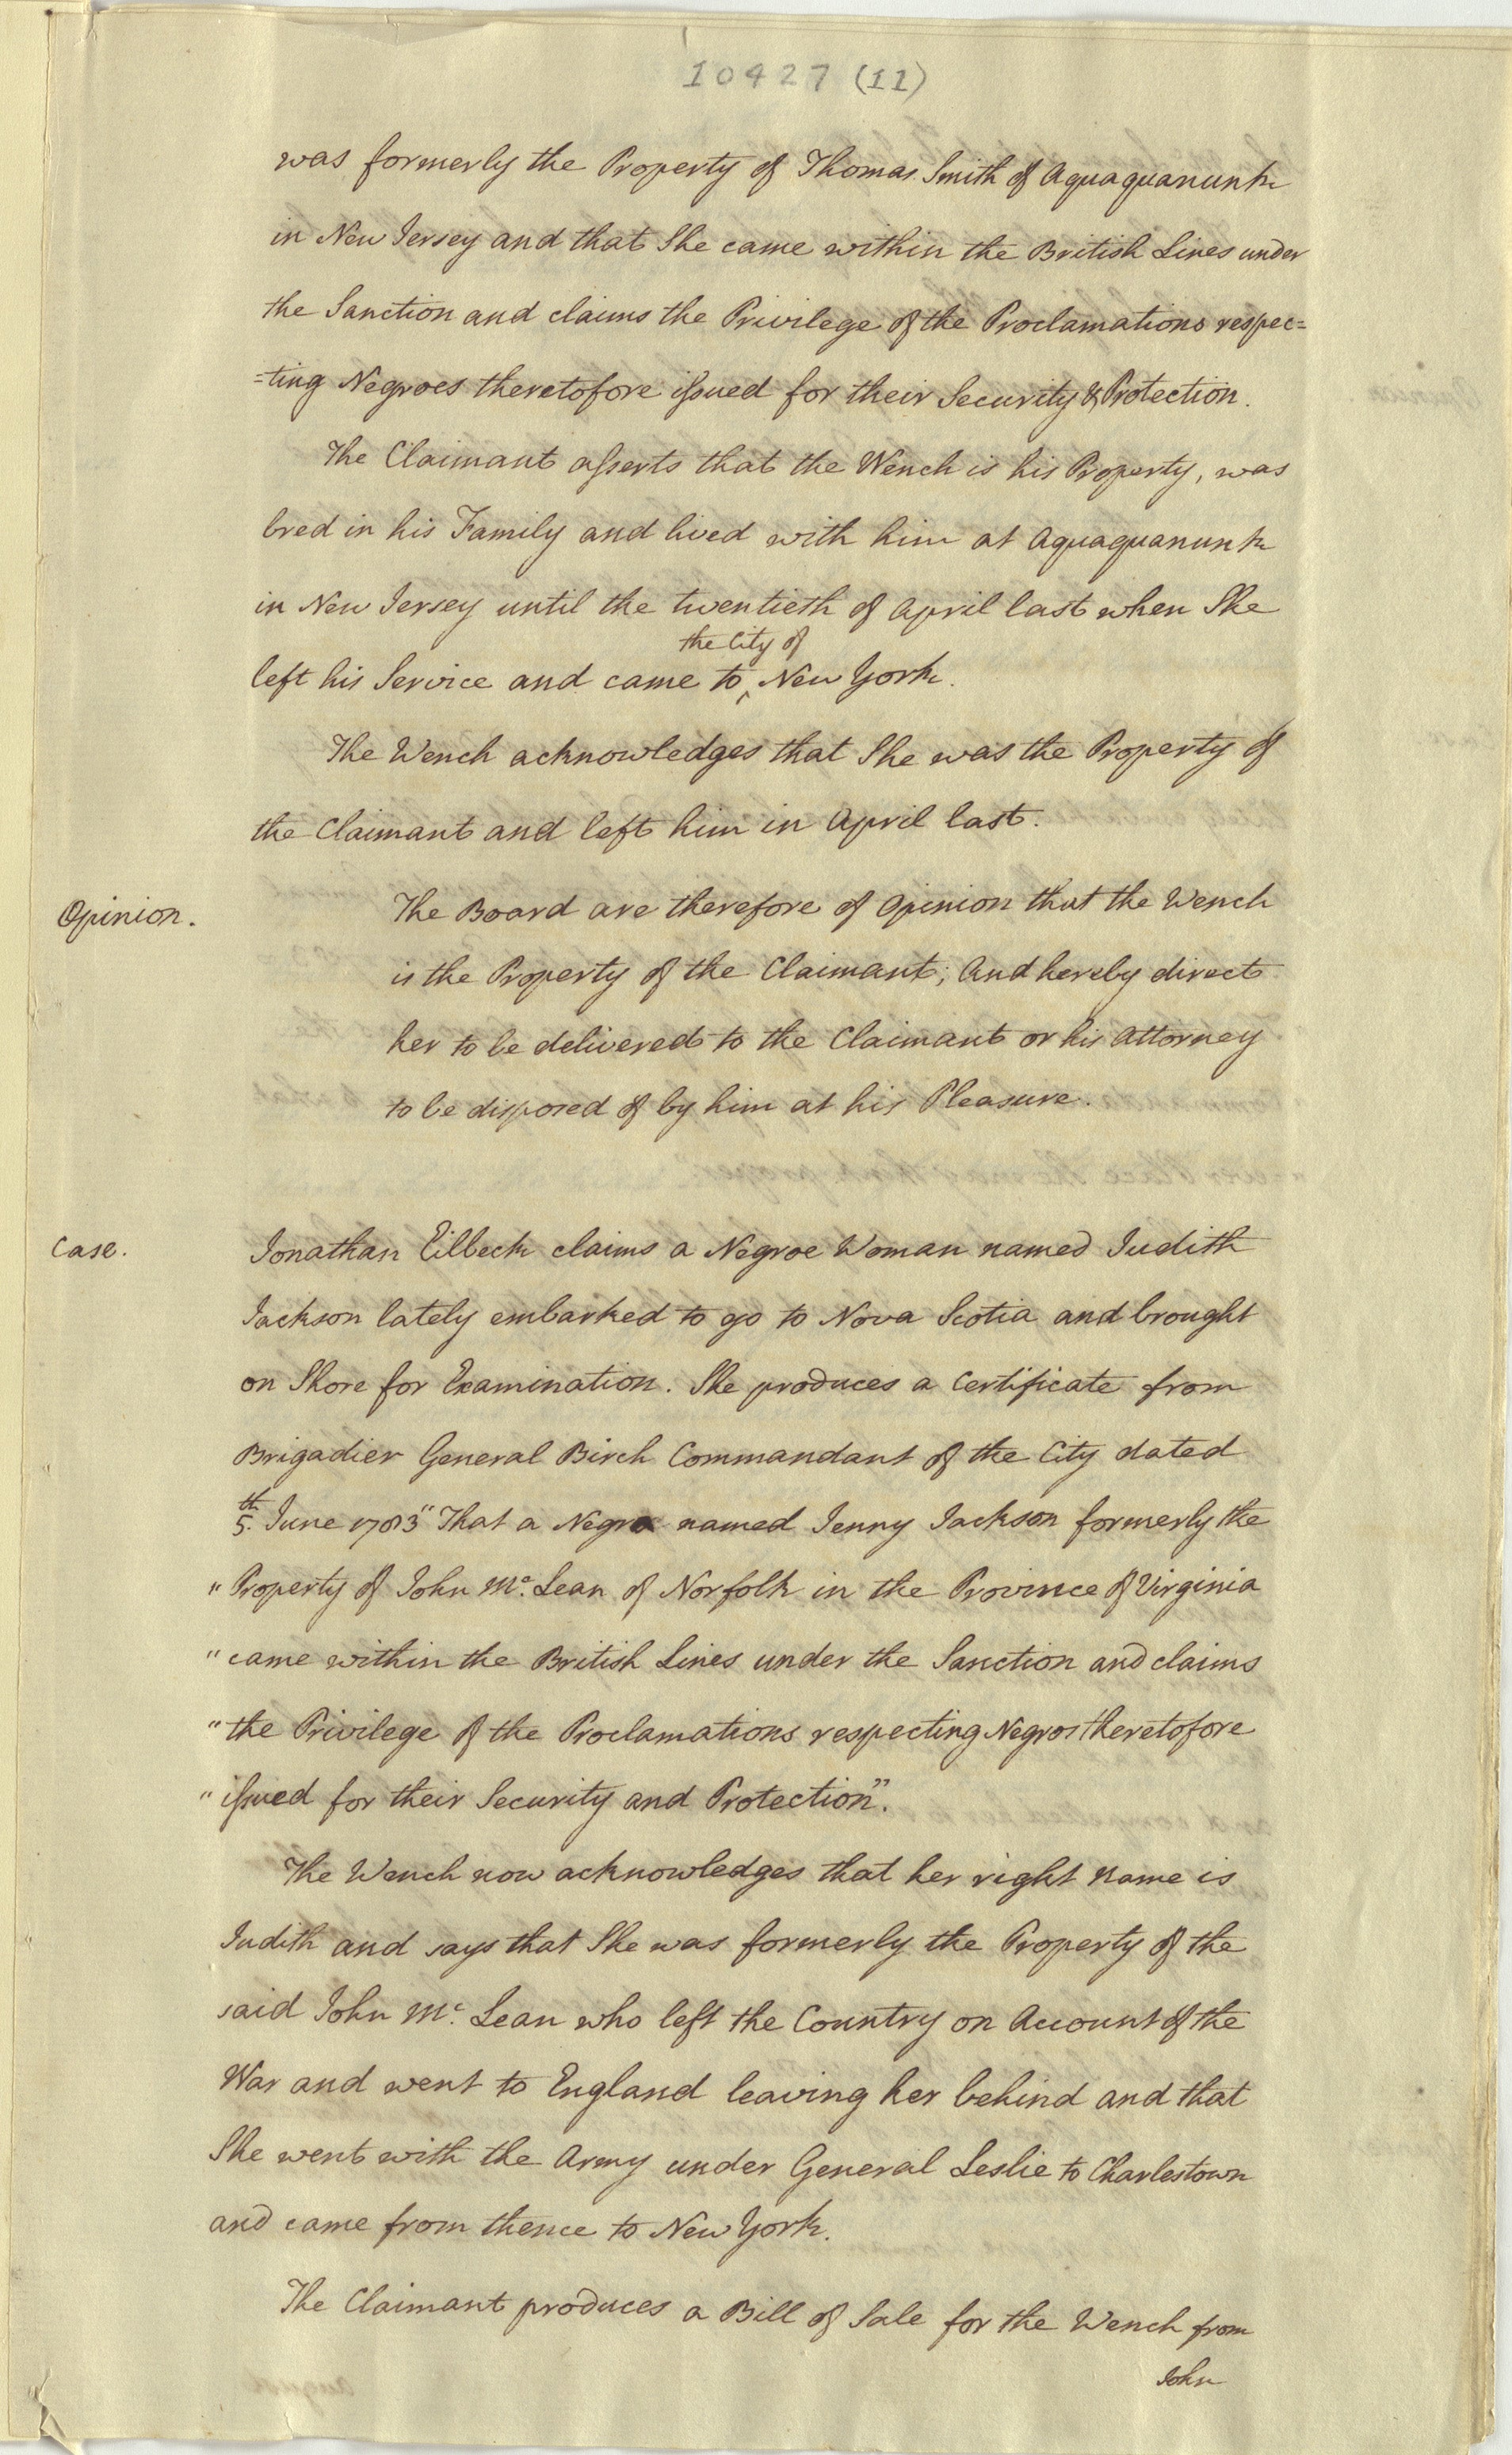 10427 (11)
was formerly the Property of Thomas Smith of Aquaquanunk
in New Jersey and that She came within the British Lines under
the Sanction and claims the Privilege of the Proclamations respec=
=ting Negroes theretofore issued for their Security & Protection.
The Claimant asserts that the Wench is his Property, was
bred in his Family and lived with him at Aquaquanunk
in New Jersey until the twentieth of April last when She
the City of
left his Service and came to ‸ New York.
The Wench acknowledges that She was the Property of
the Claimant and left him in April last.
Opinion.
The Board are therefore of Opinion that the Wench
is the Property of the Claimant; And hereby direct
her to be delivered to the Claimant or his Attorney
to be disposed of by him at his Pleasure.
Case.
Jonathan Eilbeck claims a Negroe Woman named Judith
Jackson lately embarked to go to Nova Scotia and brought
on Shore for Examination. She produces a Certificate from
Brigadier General Birch Commandant of the City dated
5th. June 1783 "That a Negro named Jenny Jackson formerly the
" Property of John Mc. Lean of Norfolk in the Province of Virginia
" came within the British Lines under the Sanction and claims
" the Privilege of the Proclamations respecting Negros theretofore
" issued for their Security and Protection".
The Wench now acknowledges that her right Name is
Judith and says that She was formerly the Property of the
said John Mc. Lean who left the Country on Account of the
War and went to England leaving her behind and that
She went with the Army under General Leslie to Charlestown
and came from thence to New York.
The Claimant produces a Bill of Sale for the Wench from
John